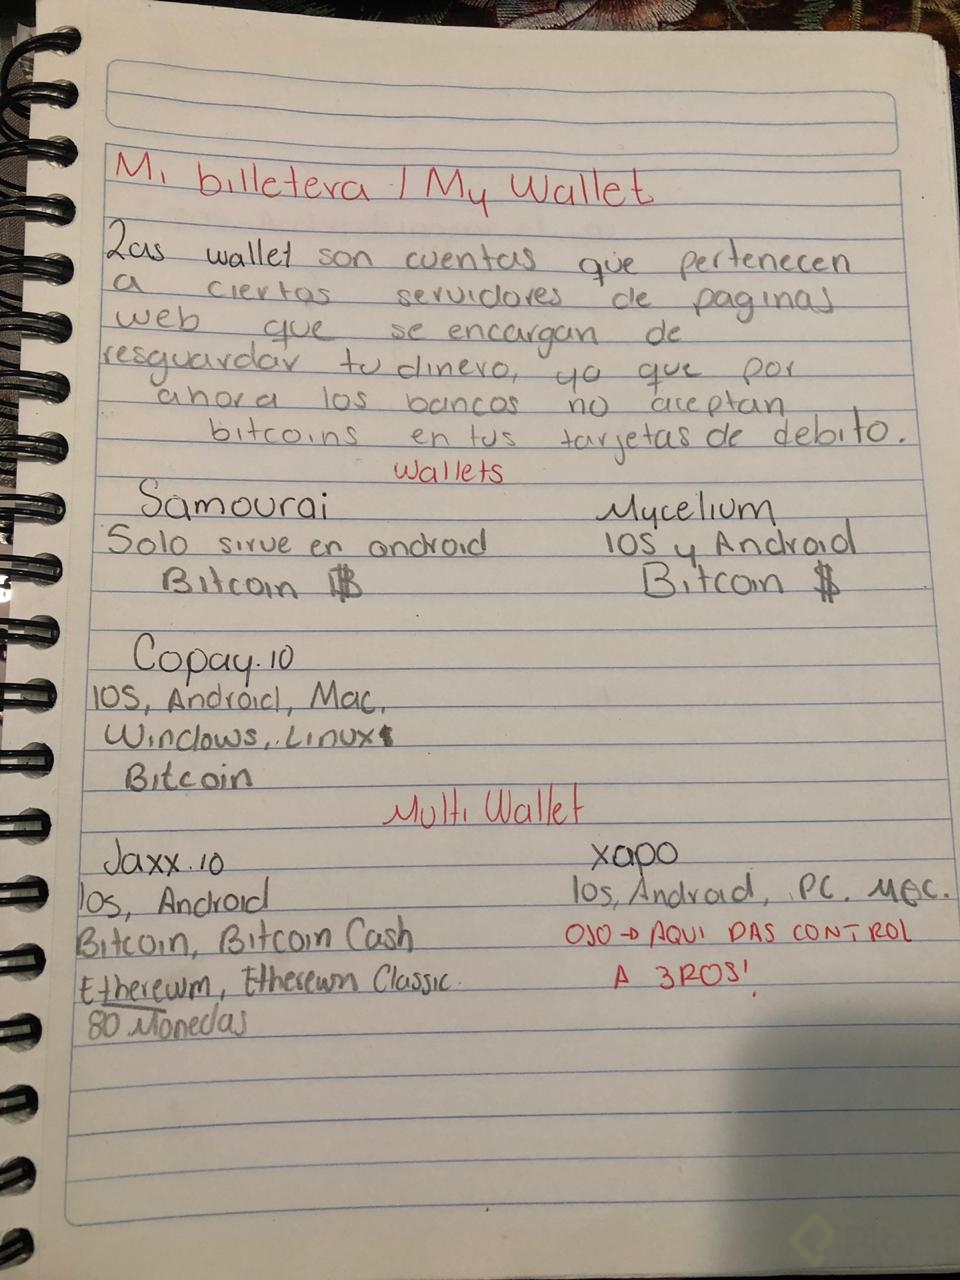 Mi billetera / My Wallet
Las wallet son cuentas que pertenecen
a ciertos servidores de paginas
web que se encargan de
resguardar tu dinero, ya que por
ahora los bancos no aceptan
bitcoins en tus tarjetas de debito.
Wallets
Samourai
Solo sirve en android
Bitcoin ₿
Mycelium
IOS y Android
Bitcoin $
Copay.io
IOS, Android, Mac,
Windows, Linux
Bitcoin
Multi Wallet
Jaxx.io
Ios, Android
Bitcoin, Bitcoin Cash
Ethereum, Ethereum Classic.
80 Monedas
xapo
Ios, Android, PC, MAC.
OJO → AQUI DAS CONTROL
A 3ROS!
Platzi